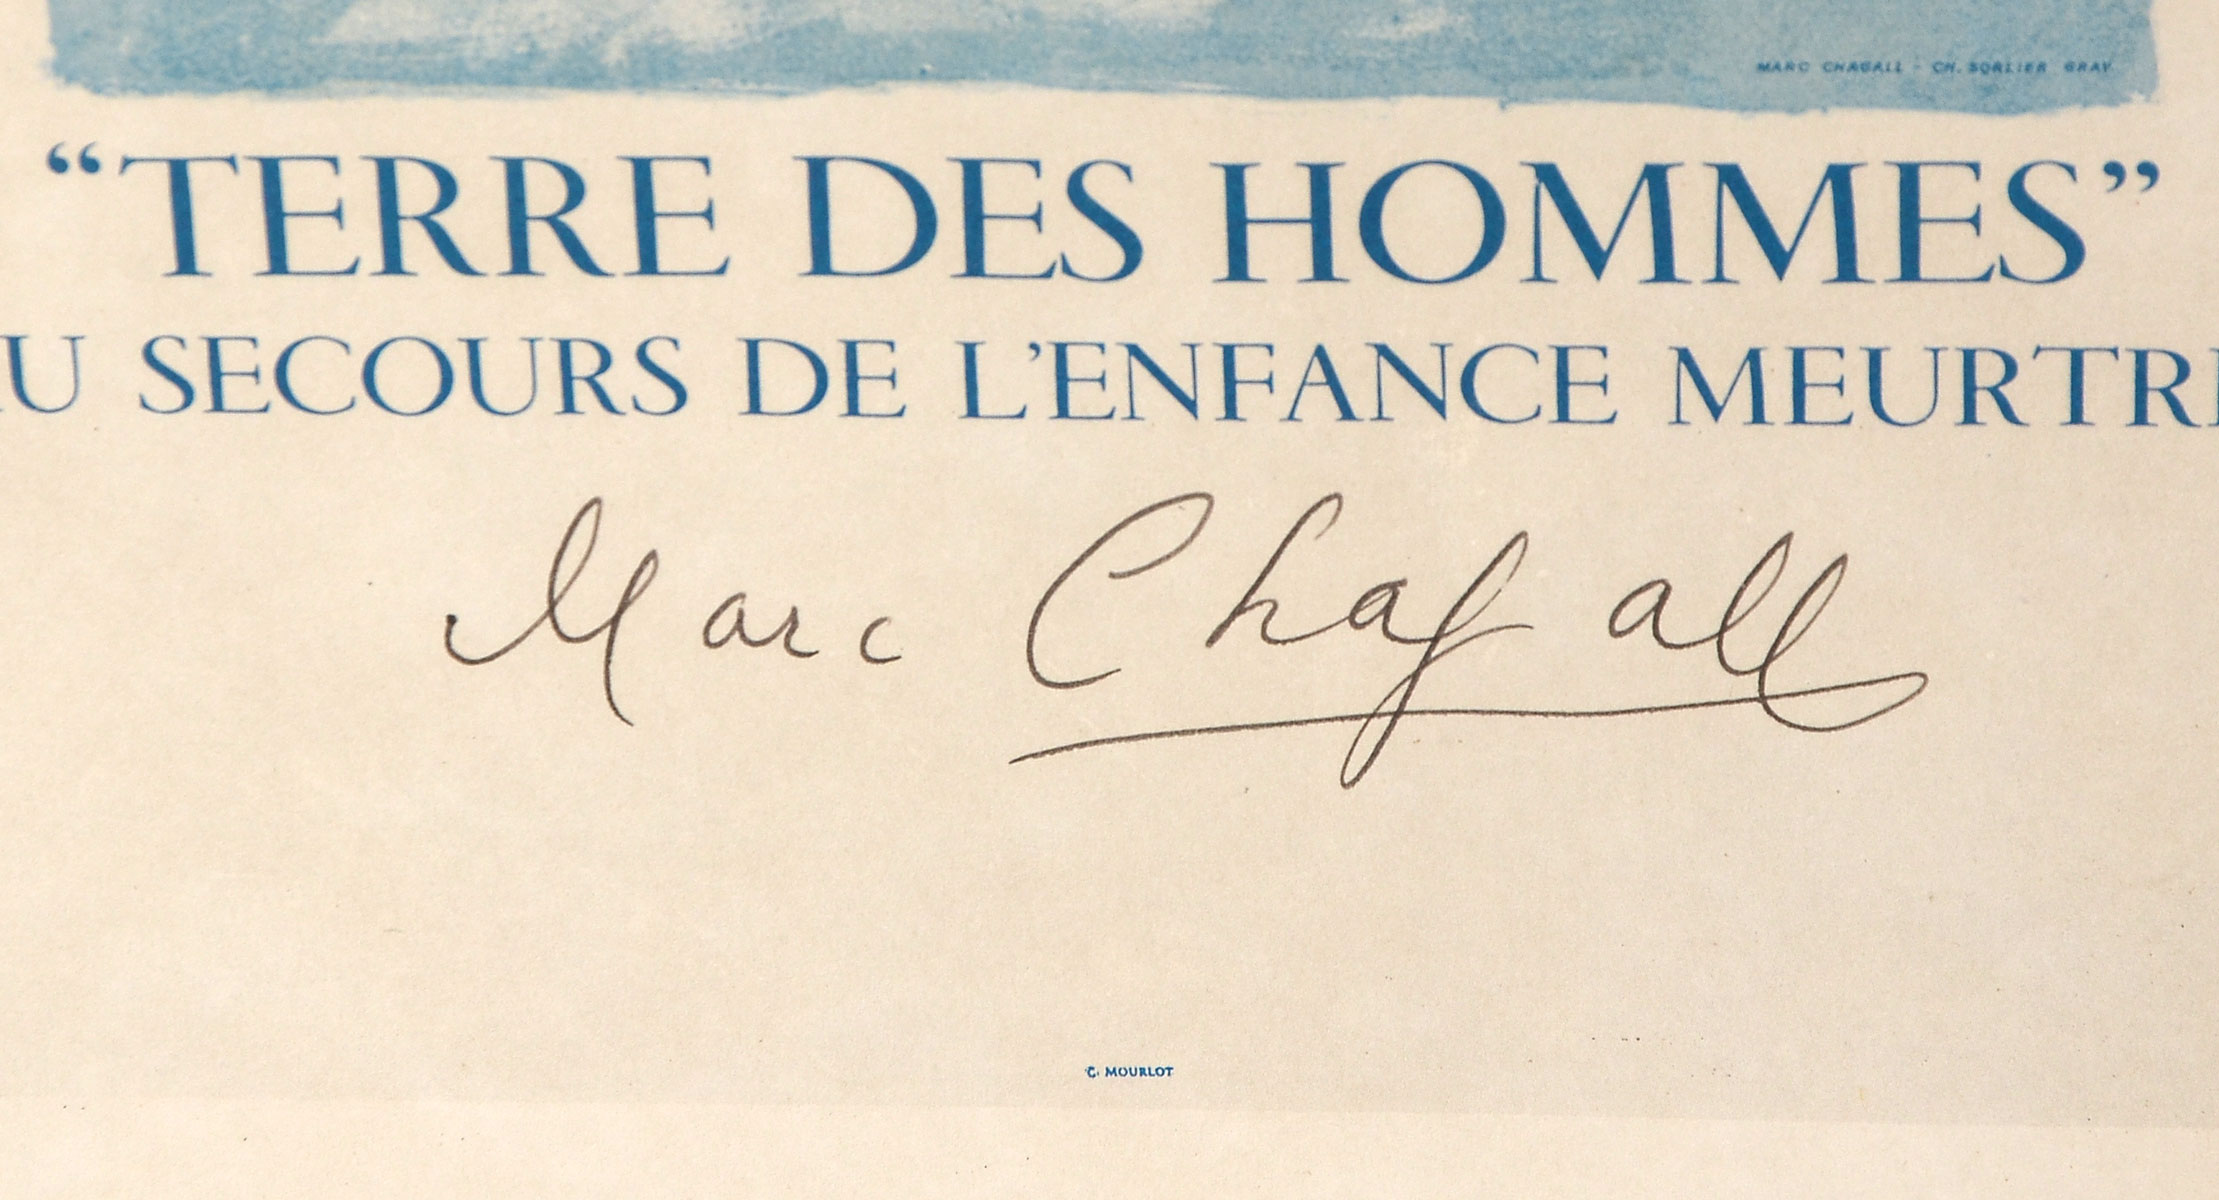 MARC CHAGALL - CH. SORLIER GRAV.
“TERRE DES HOMMES”
AU SECOURS DE L’ENFANCE MEURTRI
Marc Chagall
C. MOURLOT